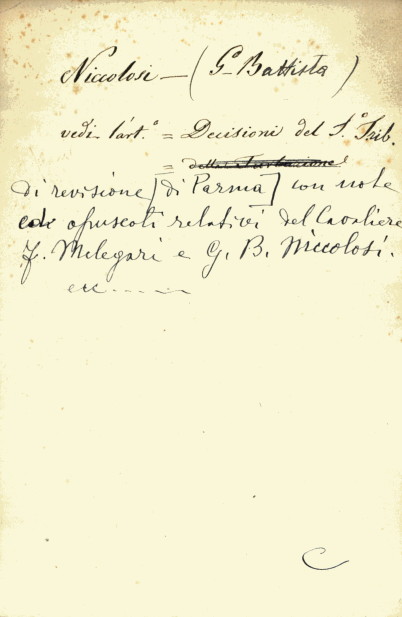 Niccolosi — (G. Battista)
vedi l'art.° = Decisioni del S.° Trib.
=
di revisione] di Parma] con note
ed opuscoli relativi del Cavaliere
F. Melegari e G. B. Niccolosi.
ecc......
C